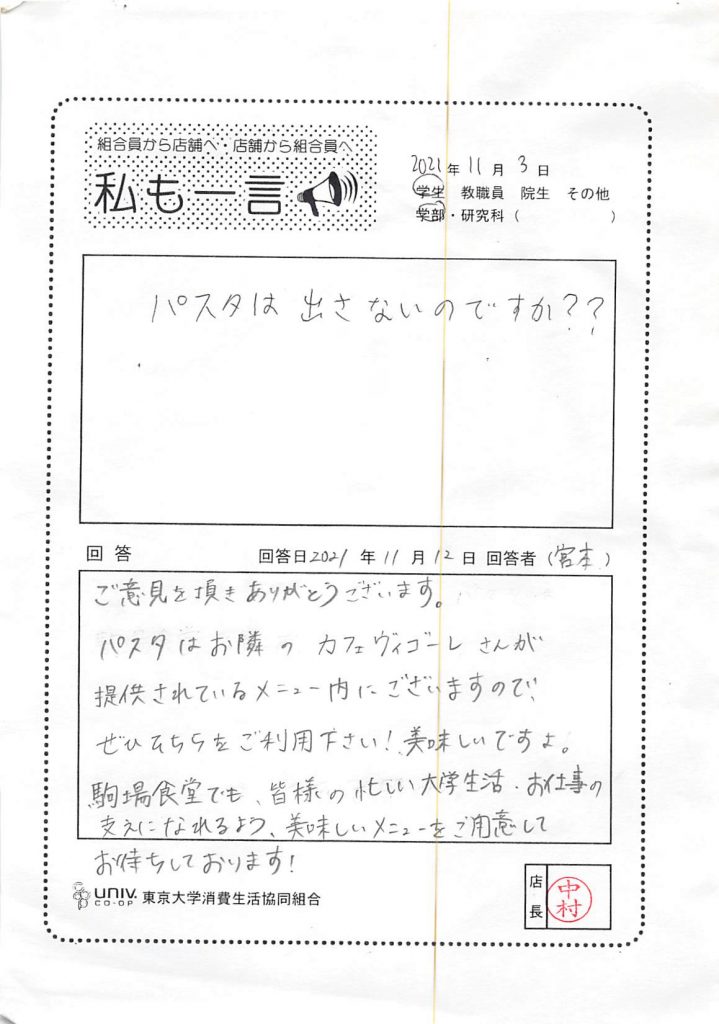 組合員から店舗へ・店舗から組合員へ
私も一言
2021年11月3日
学生 教職員 院生 その他
学部・研究科( )
パスタは出さないのですか??
回答 回答日2021年11月12日 回答者(宮本)
ご意見を頂きありがとうございます。
パスタはお隣のカフェヴィゴーレさんが
提供されているメニュー内にございますので、
ぜひそちらをご利用下さい!美味しいですよ。
駒場食堂でも、皆様の忙しい大学生活・お仕事の
支えになれるよう、美味しいメニューをご用意して
お待ちしております!
UNIV. CO-OP 東京大学消費生活協同組合
店長 中村